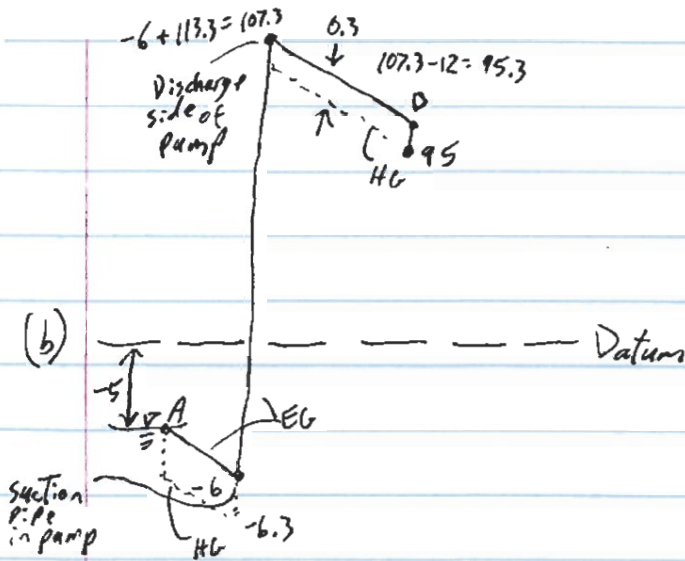 -6 + 113.3 = 107.3
0.3
107.3 - 12 = 95.3
Discharge
side of
pump
D
95
HG
(b)
Datum
-5
A
EG
-6
-6.3
suction
pipe
in pump
HG